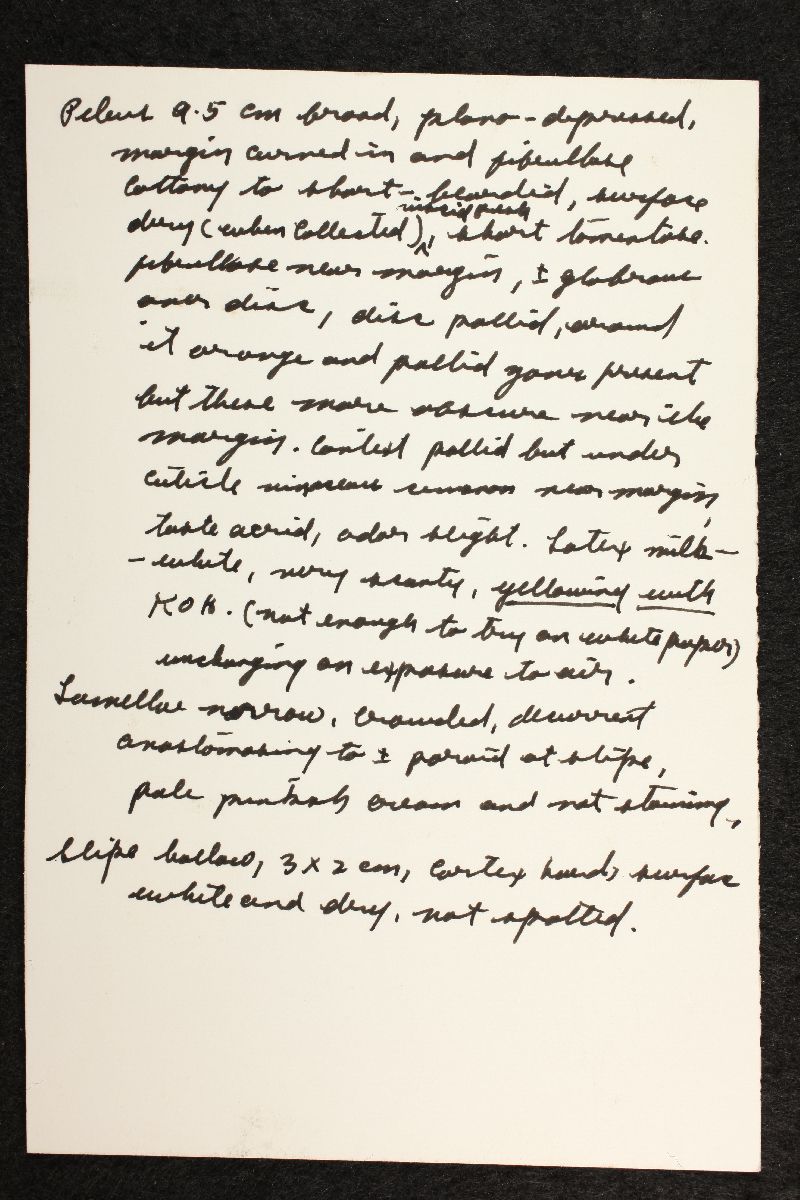 Pileus 9.5 cm broad, plano-depressed,
margin curved in and fibrillose
cottony to short-bearded, surface
viscid fresh
dry (when collected), short tomentose.
fibrillose near margin, ± glabrous
over disc, disc pallid, around
it orange and pallid zones present
but these more obscure near the
margin. Context pallid but under
cuticle near margin,
taste acrid, odor slight. Latex milk-
-white, very scanty, yellowing with
KOH. (not enough to try on white paper)
unchanging on exposure to air.
Lamellae narrow, crowded, decurrent
anastomosing to ± poroid at stipe,
pale pinkish cream and not staining,
Stipe hollow, 3 x 2 cm, cortex hard, surface
white and dry, not spotted.